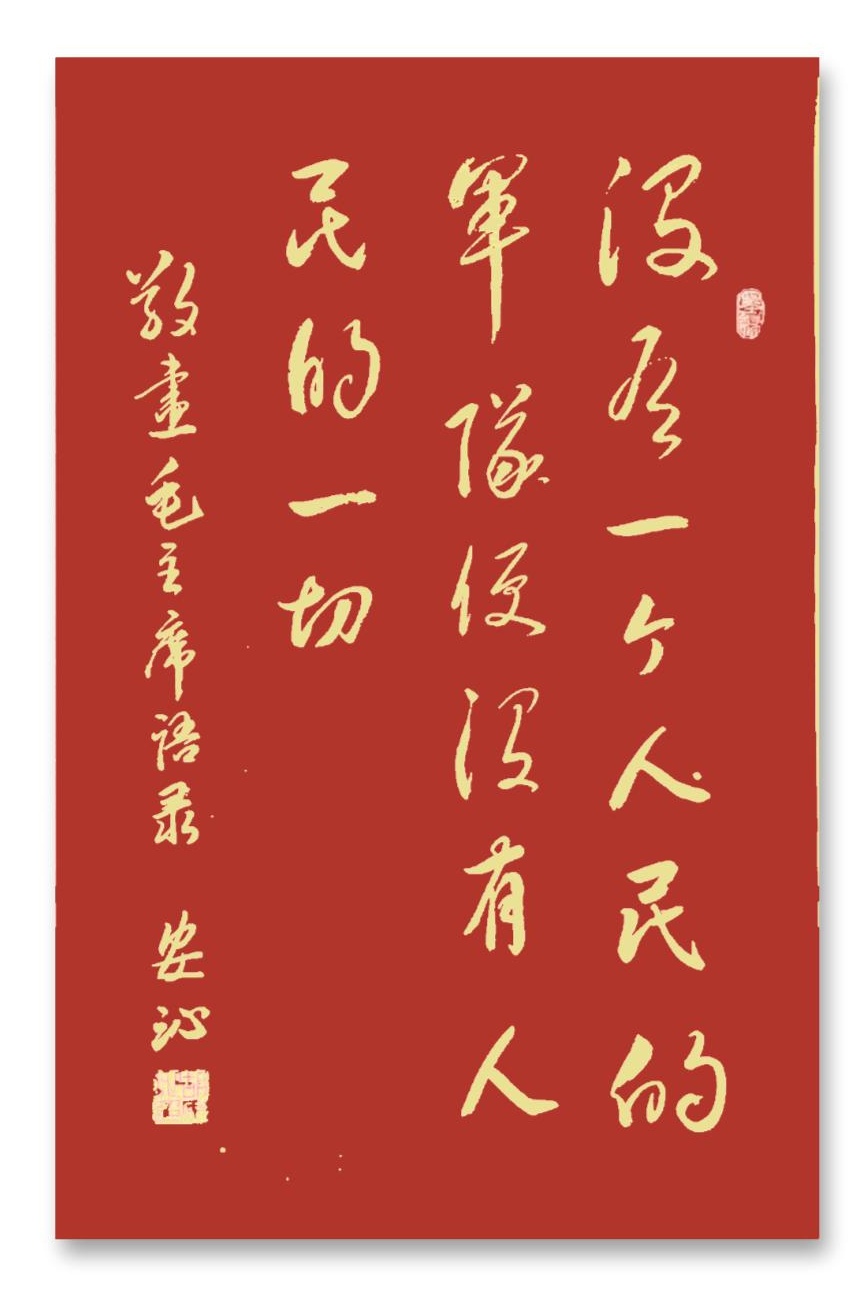 没有一个人民的
軍隊便没有人
民的一切
敬畫毛主席语录 安沁